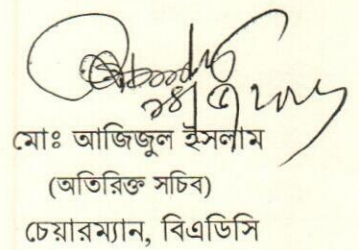 মোঃ আজিজুল ইসলাম
(অতিরিক্ত সচিব)
চেয়ারম্যান, বিএডিসি